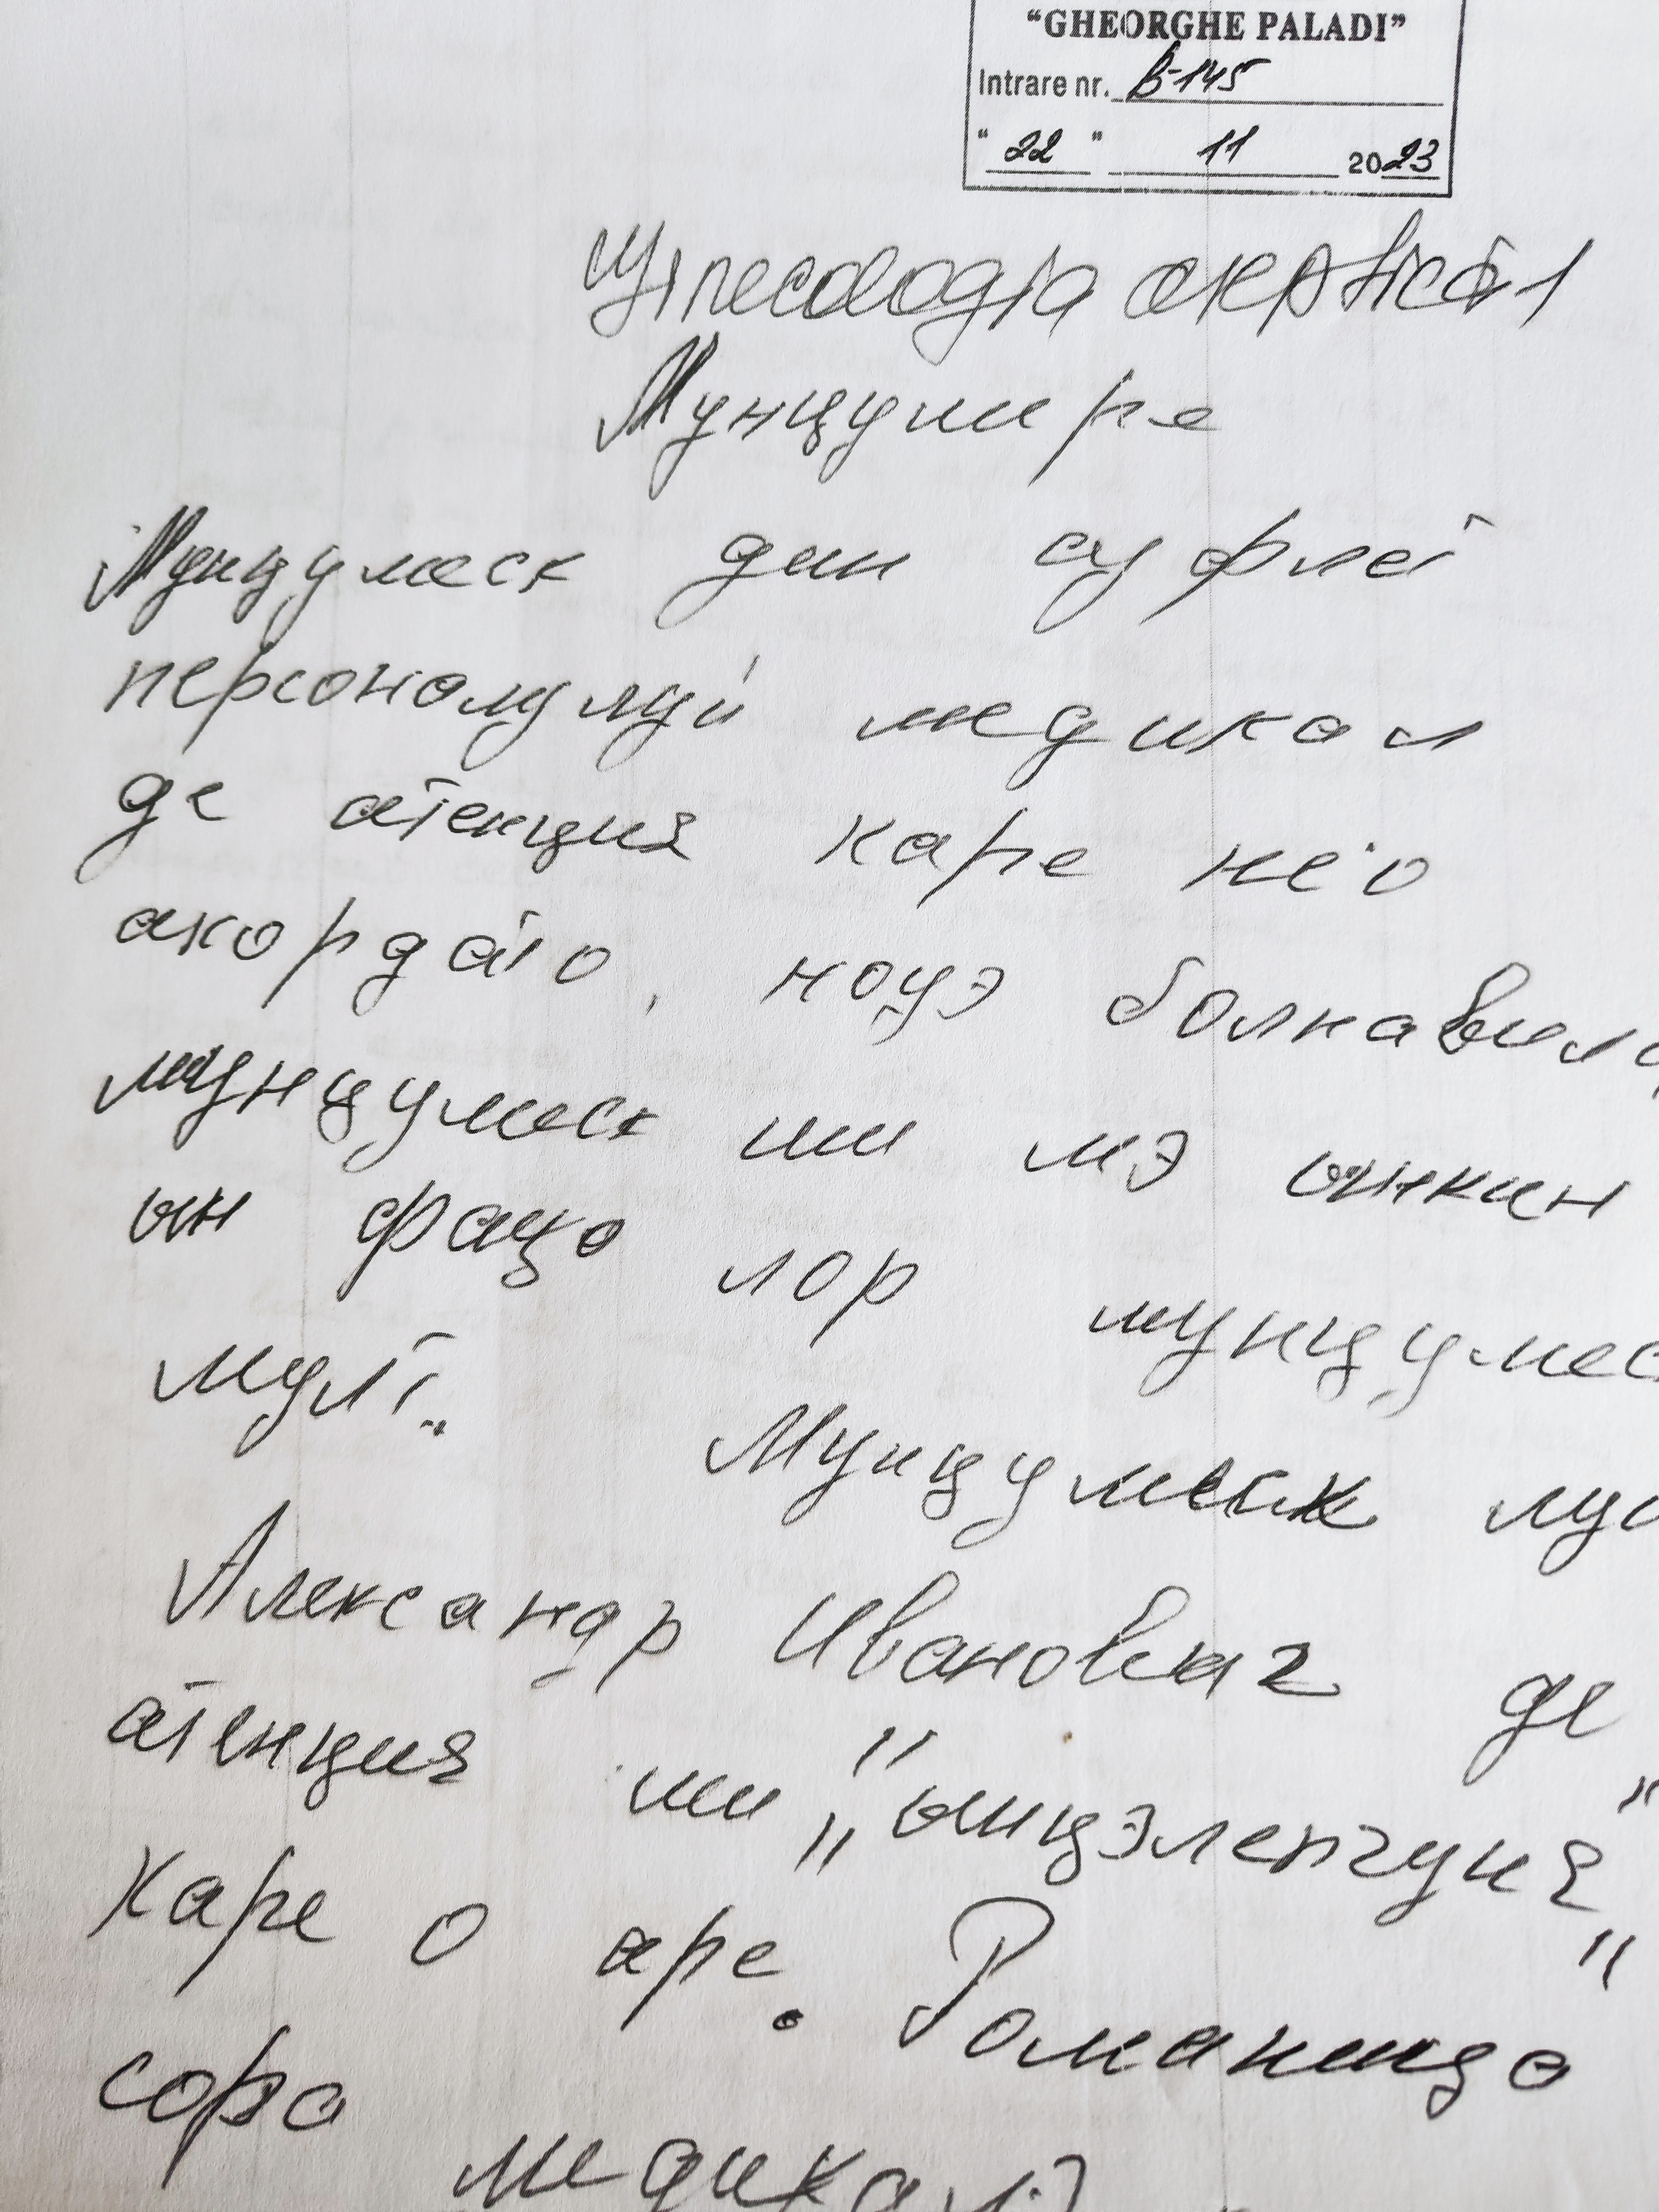 “GHEORGHE PALADI”
Intrare nr. B-145
“ 22 ” 11 2023
Ginecologia aseptică 1
Мунцумире
Мунцумеск дин суфлет
персоналулуй медикал
де атенция каре не'о
акордато, ноуэ болнавил
мунцумеск ши мэ ынкин
ын фаца лор мунцумес
мулт.. Мунцумеск лу
Александр Иванович де
атенция ши „ынцэлепчуня”
каре о аре. Романица
сора медикалэ